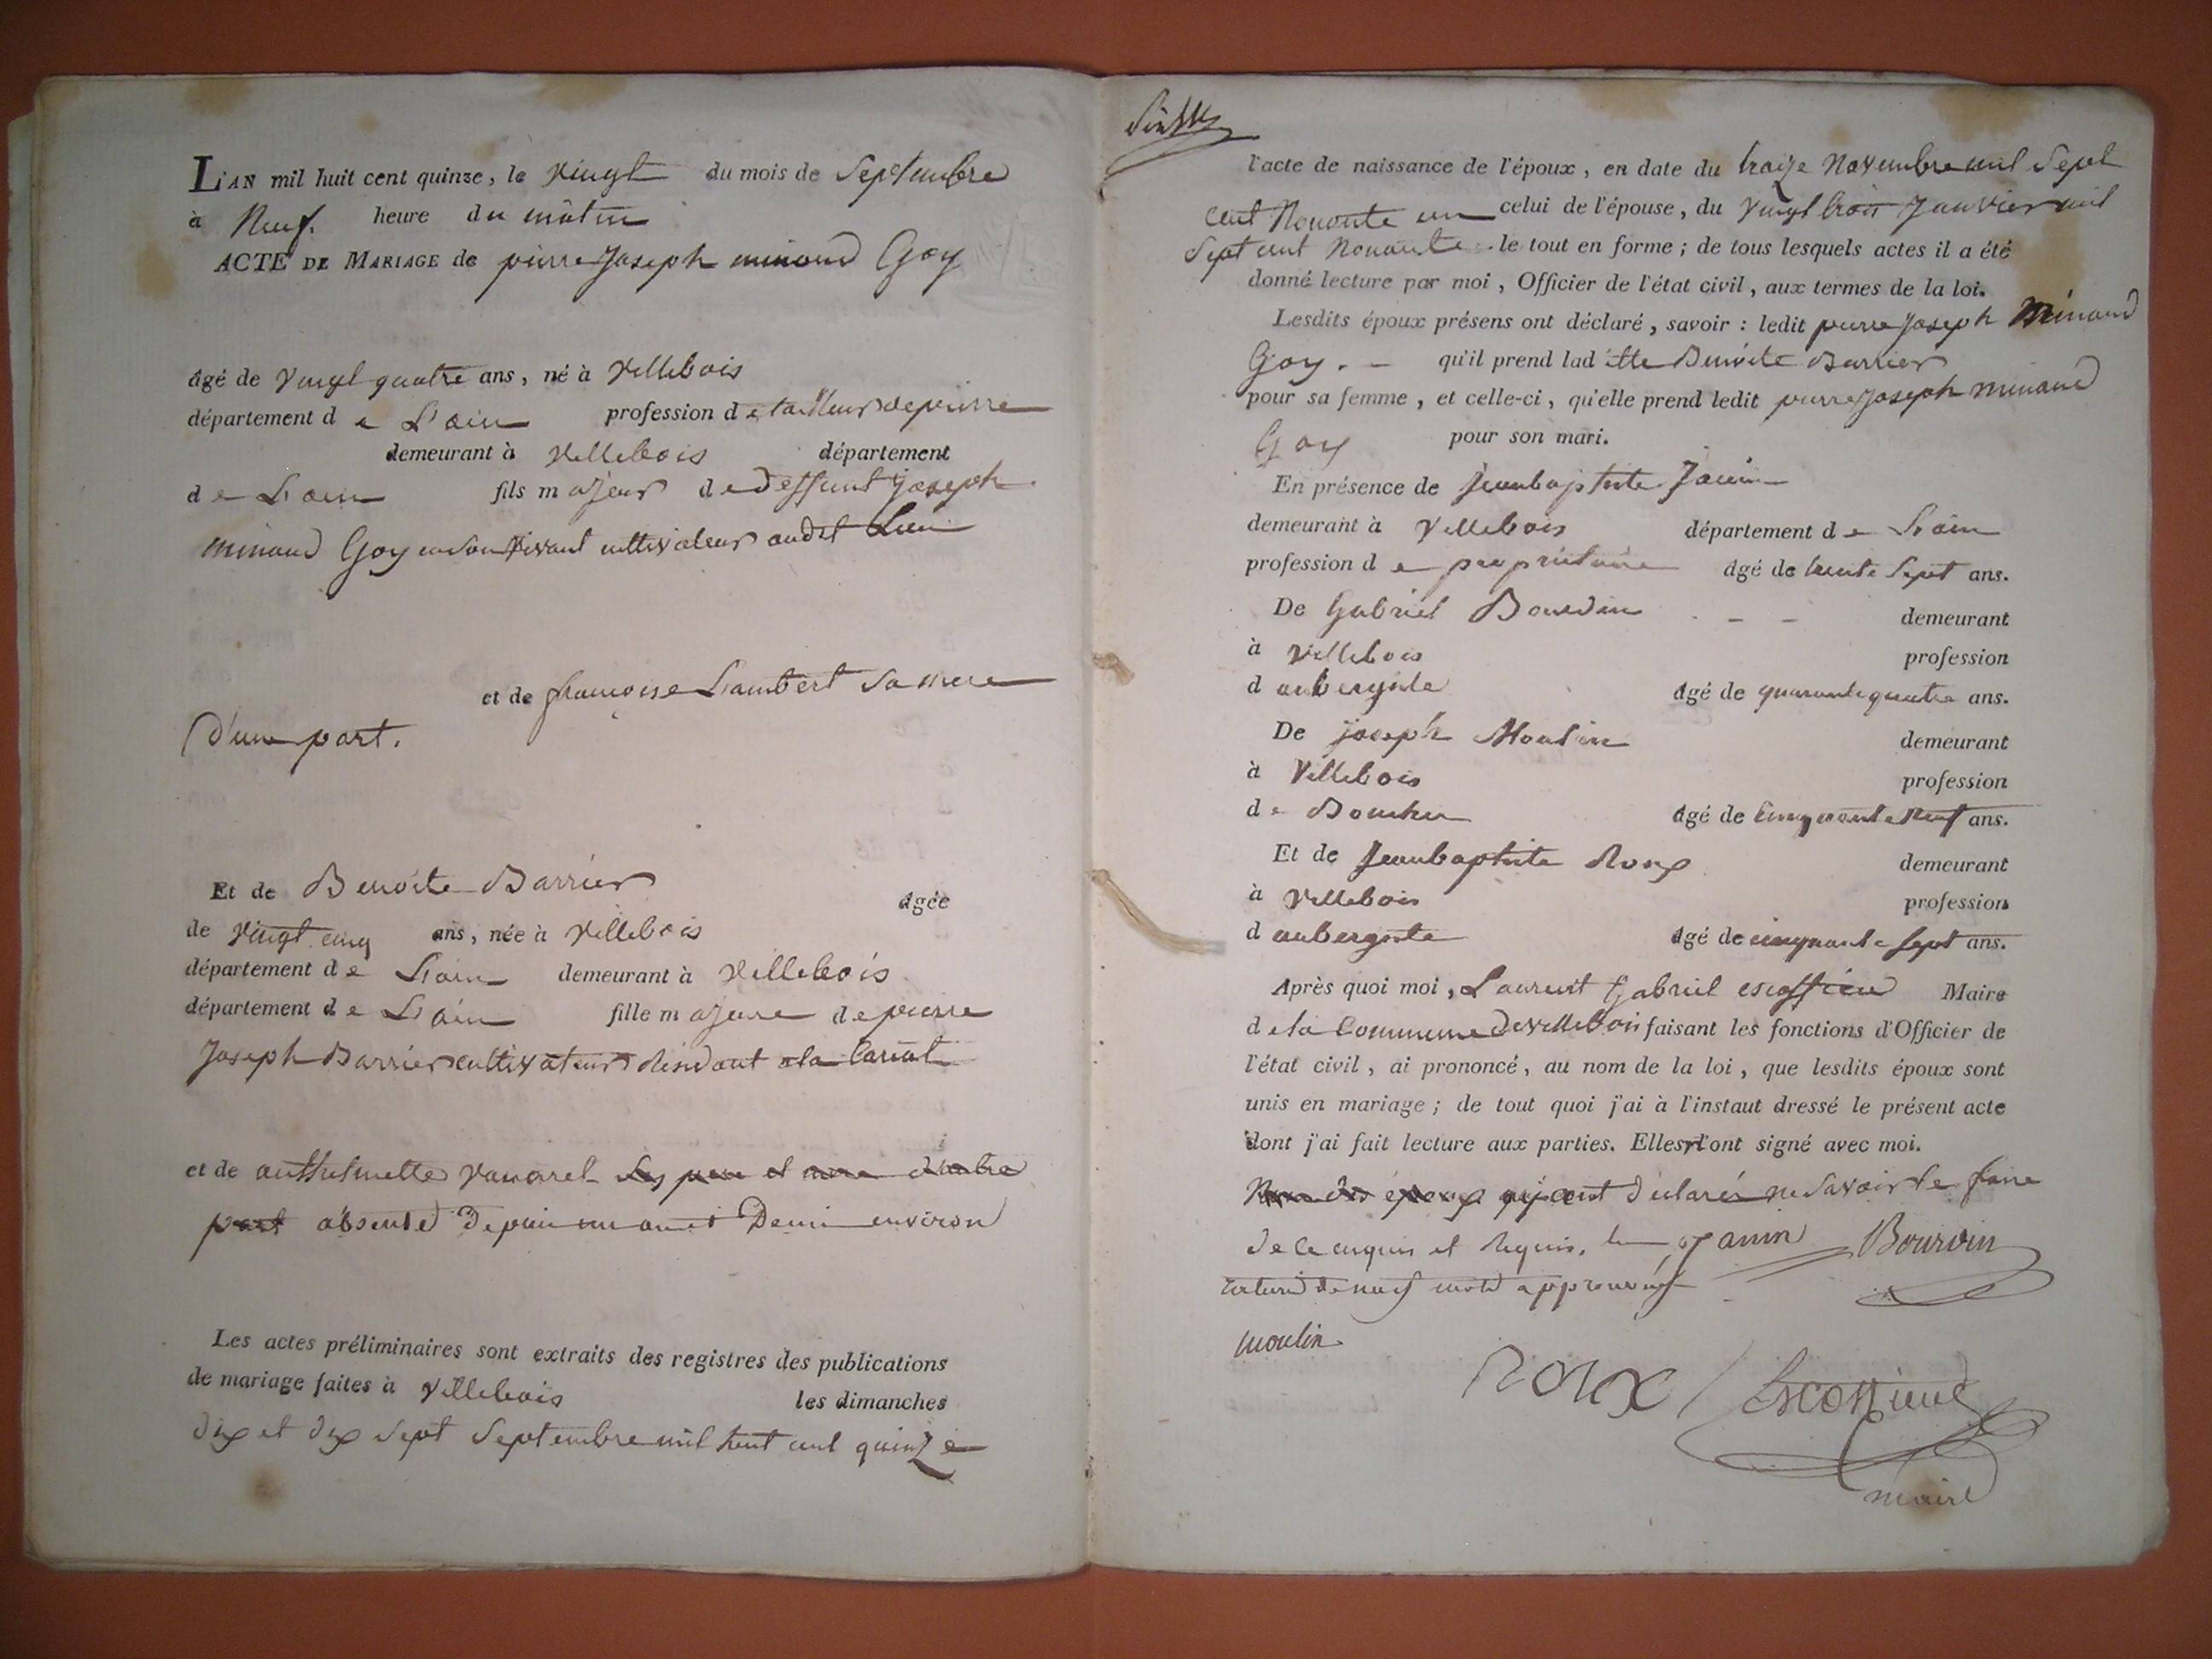 L'AN mil huit cent quinze, le vingt du mois de Septembre
à Neuf heure du mâtin
ACTE DE MARIAGE de pierre Joseph minand Goy
âgé de vingt quatre ans, né à Villebois
département de L'ain profession de tailleur de pierre
demeurant à Villebois département
de L'ain fils majeur de deffunt joseph
minand Goy en son vivant cultivateur audit Lieu
et de françoise Lambert sa mere
D'une part.
Et de Benoite Barrier âgée
de vingt cinq ans, née à Villebois
département de L'ain demeurant à Villebois
département de L'ain fille majeure de pierre
Joseph Barrier cultivateur Résidant a la
et de anthelmette ses pere et mere d'autre
part absente Depuis un an et Demi environ
Les actes préliminaires sont extraits des registres des publications
de mariage faites à Villebois les dimanches
dix et dix sept Septembre mil huit cent quinze
l'acte de naissance de l'époux, en date du traize Novembre mil Sept
cent Nonante un celui de l'épouse, du vingt trois Janvier mil
Sept cent Nonante le tout en forme ; de tous lesquels actes il a été
donné lecture par moi, Officier de l'état civil, aux termes de la loi.
Lesdits époux présens ont déclaré, savoir : ledit pierre Joseph Minand
Goy. - qu'il prend laditte Benoite Barrier
pour sa femme, et celle-ci, qu'elle prend ledit pierre Joseph minand
Goy pour son mari.
En présence de Jeanbaptiste Janin
demeurant à Villebois département de L'ain
profession de propriétaire âgé de trente Sept ans.
De Gabriel Bourdin - - demeurant
à Villebois profession
d'aubergiste âgé de quarante quatre ans.
De joseph Moulin demeurant
à Villebois profession
de Boucher âgé de Cinquante Neuf ans.
Et de Jeanbaptiste Roux demeurant
à Villebois profession
d aubergiste âgé de cinquante sept ans.
Après quoi moi, Laurent Gabriel escoffier Maire
de la Commune de Villebois faisant les fonctions d'Officier de
l'état civil, ai prononcé, au nom de la loi, que lesdits époux sont
unis en mariage ; de tout quoi j'ai à l'instaut dressé le présent acte
dont j'ai fait lecture aux parties. Elles l'ont signé avec moi.
époux ont déclarés ne Savoir le faire
de ce enquis et Requis. Janin Bourdin
de neuf mots approuvés
moulin
ROUX
maire